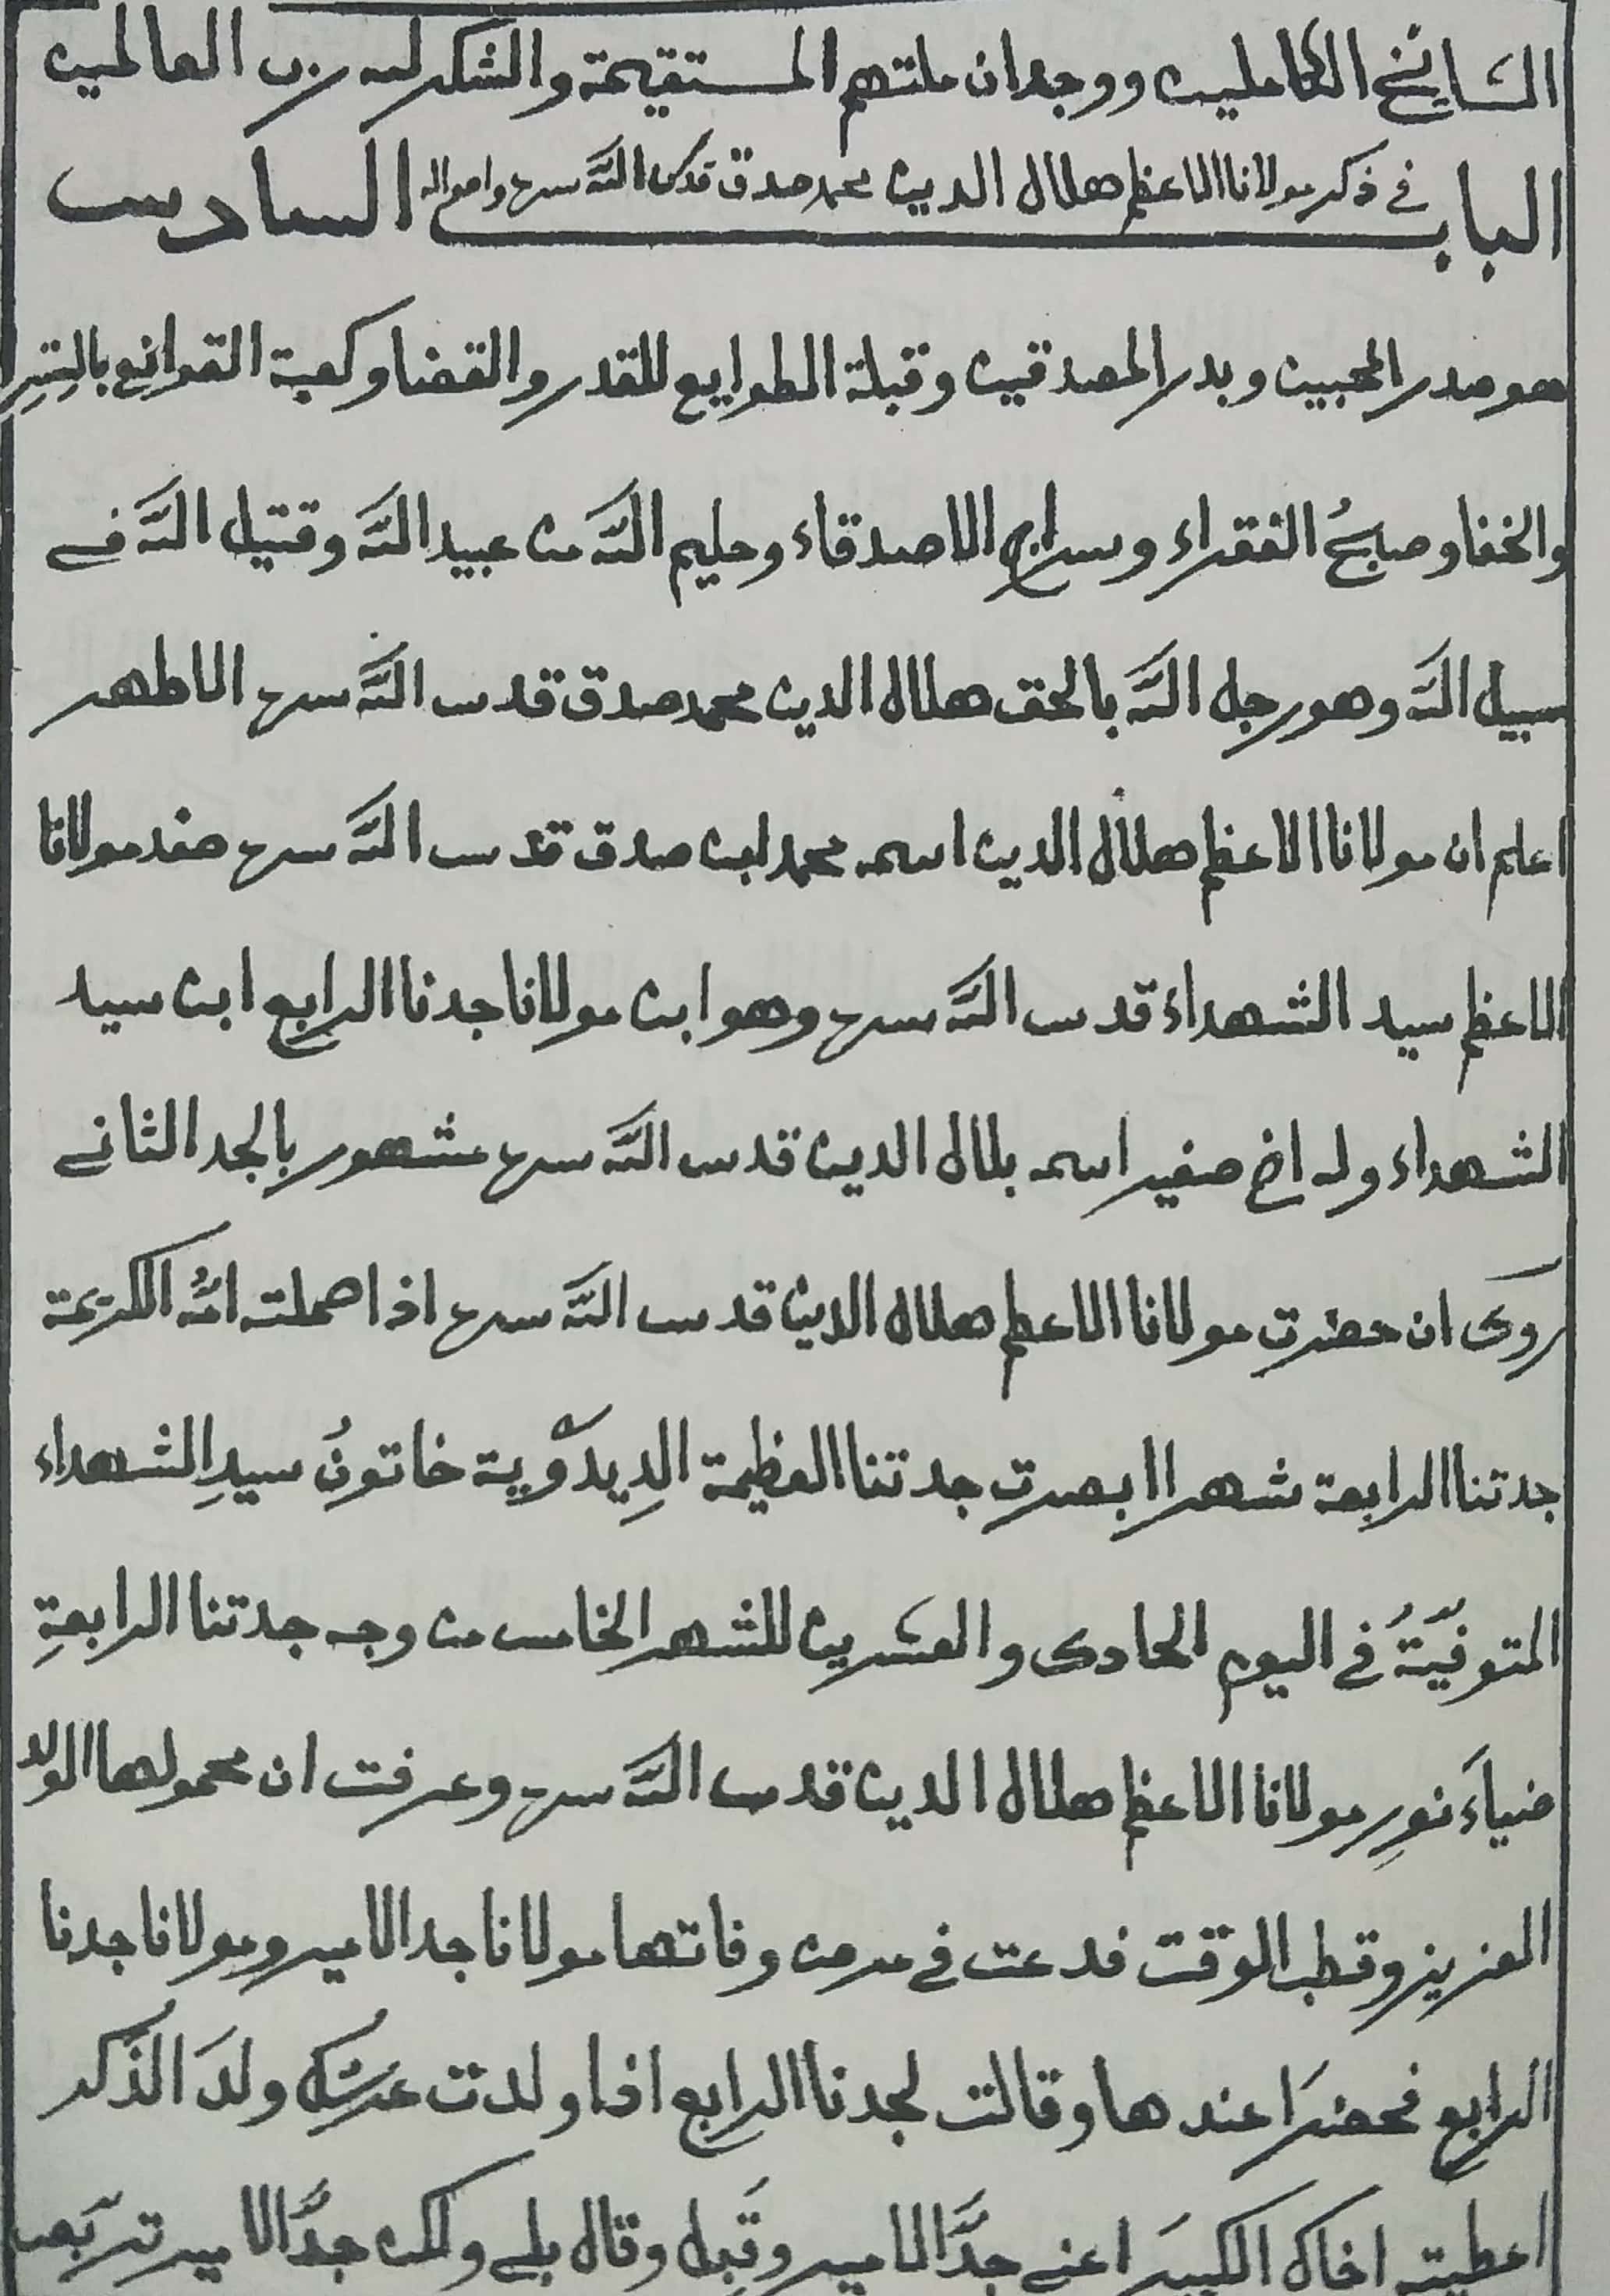 المشايخ الكاملين ووجدان ملتهم المستقيمة والشكر لله رب العالمين
الباب السادس
في ذكر مولانا الاعظم هلال الدين محمد صدق قدس الله سره واحواله
هو صدر المحبين وبدر المصدقين وقبلة الطوايع للقدر والقضا وكعبة القوانع بالسِّرِ
والخفا وصبحُ الفقراء وسراج الاصدقاء وحليم الله من عبيد الله وقتيل الله في
سبيل الله وهو رجل الله بالحق هلال الدين محمد صدق قدس الله سره الاطهر
اعلم ان مولانا الاعظم هلال الدين اسمه محمد ابن صدق قدس الله سره حفد مولانا
الاعظم سيد الشهداء قدس الله سره وهو ابن مولانا جدنا الرابع ابن سيد
الشهداء وله اخ صغير اسمه بلال الدين قدس الله سره مشهور بالجد الثاني
روى ان حضرت مولانا الاعظم هلال الدين قدس الله سره اذا حملته امُّه الكريمة
جدتنا الرابعة شهرا ابصرت جدتنا العظيمة الدِيدوّية خاتونُ سيدِ الشهداء
المتوفيّةُ في اليوم الحادى والعشرين للشهر الخامس من وجه جدتنا الرابعةِ
ضياَء نورِ مولانا الاعظم هلال الدين قدس الله سره وعرفت ان محمولها الولد
العزيز وقطب الوقت فدعت في مرض وفاتها مولانا جد الامير ومولانا جدنا
الرابع فحضرَا عندها وقالت لجدنا الرابع اذا ولدت عرسُك ولدَ الذَكر
اعطيته اخاك الكبيرَ اعني جدَّ الامير وقَبِل وقال بلى ولكن جدَّ الامير